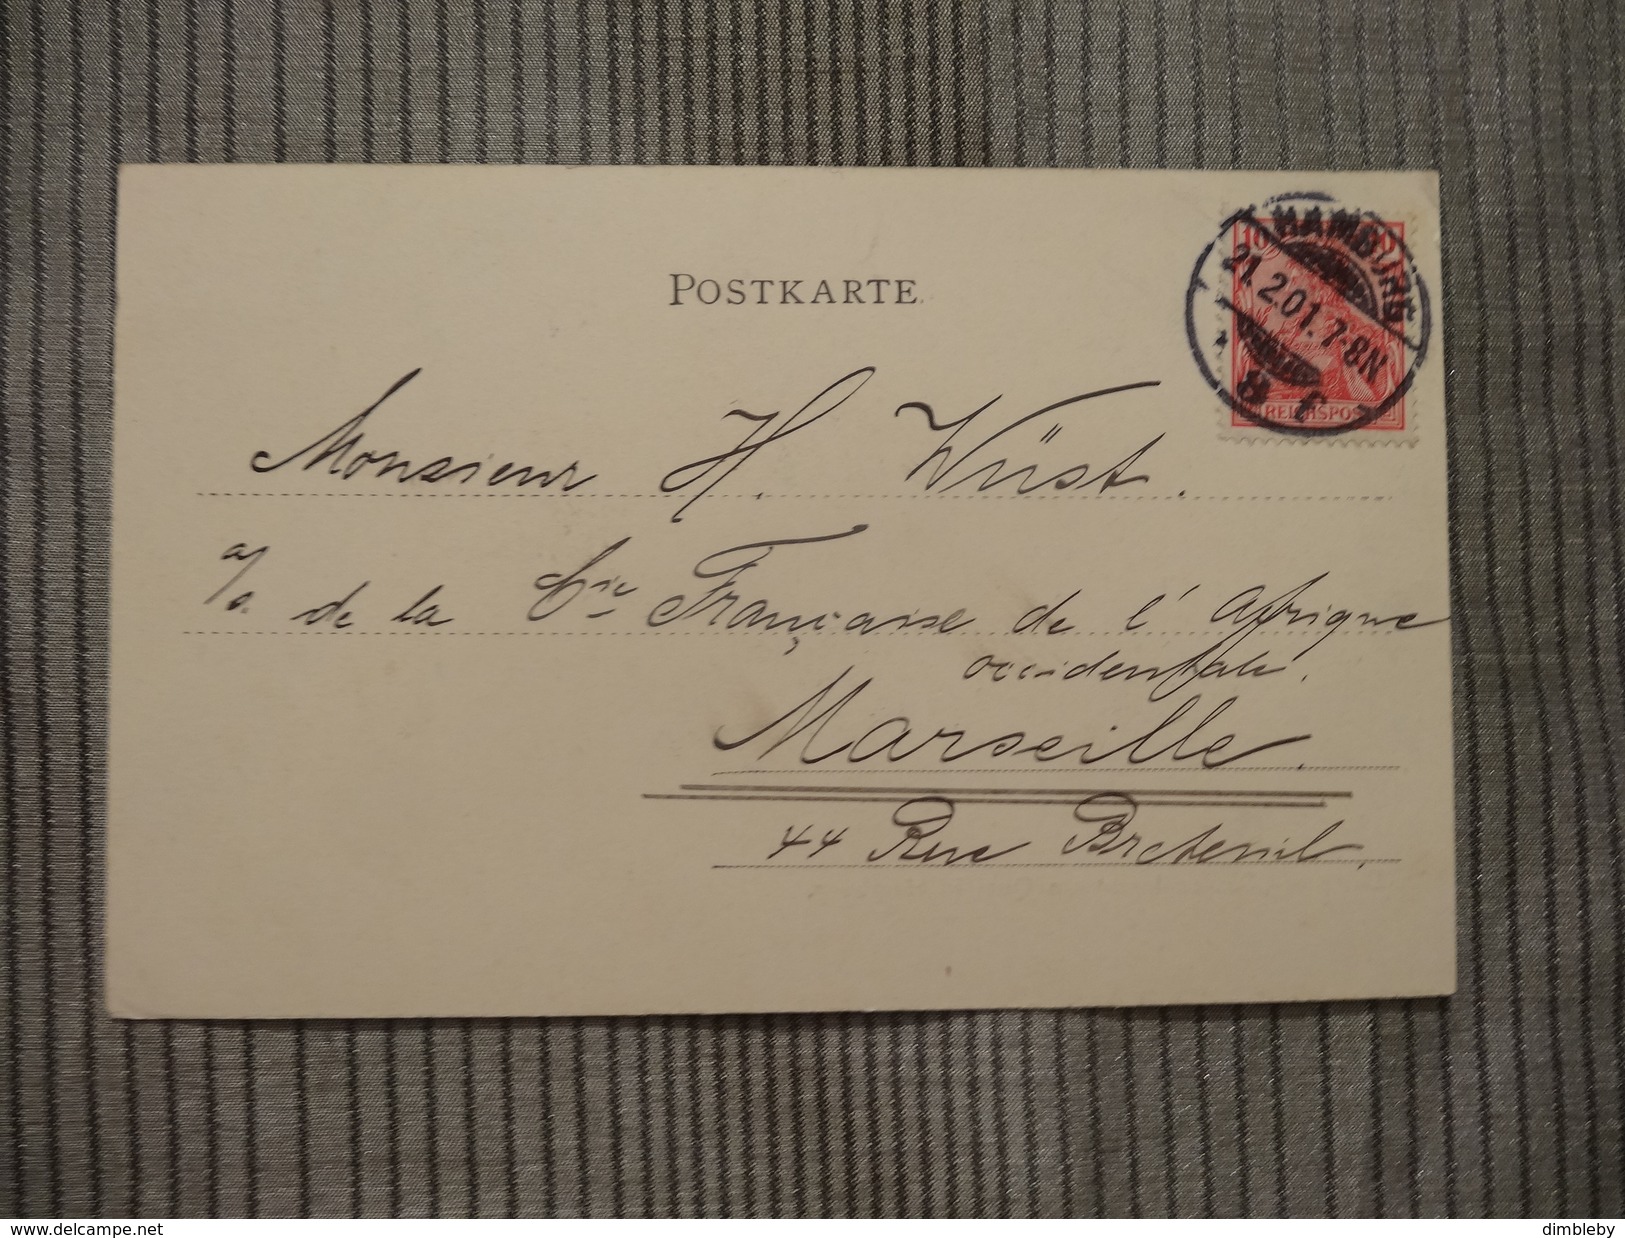 POSTKARTE
HAMBURG
21.2.01.7-8N
8 f
10
REICHSPOST
Monsieur H. Wüst.
a/s. de la Cie Française de l'Afrique
occidentale.
Marseille.
44 Rue Breteuil.
www.delcampe.net
dimbleby